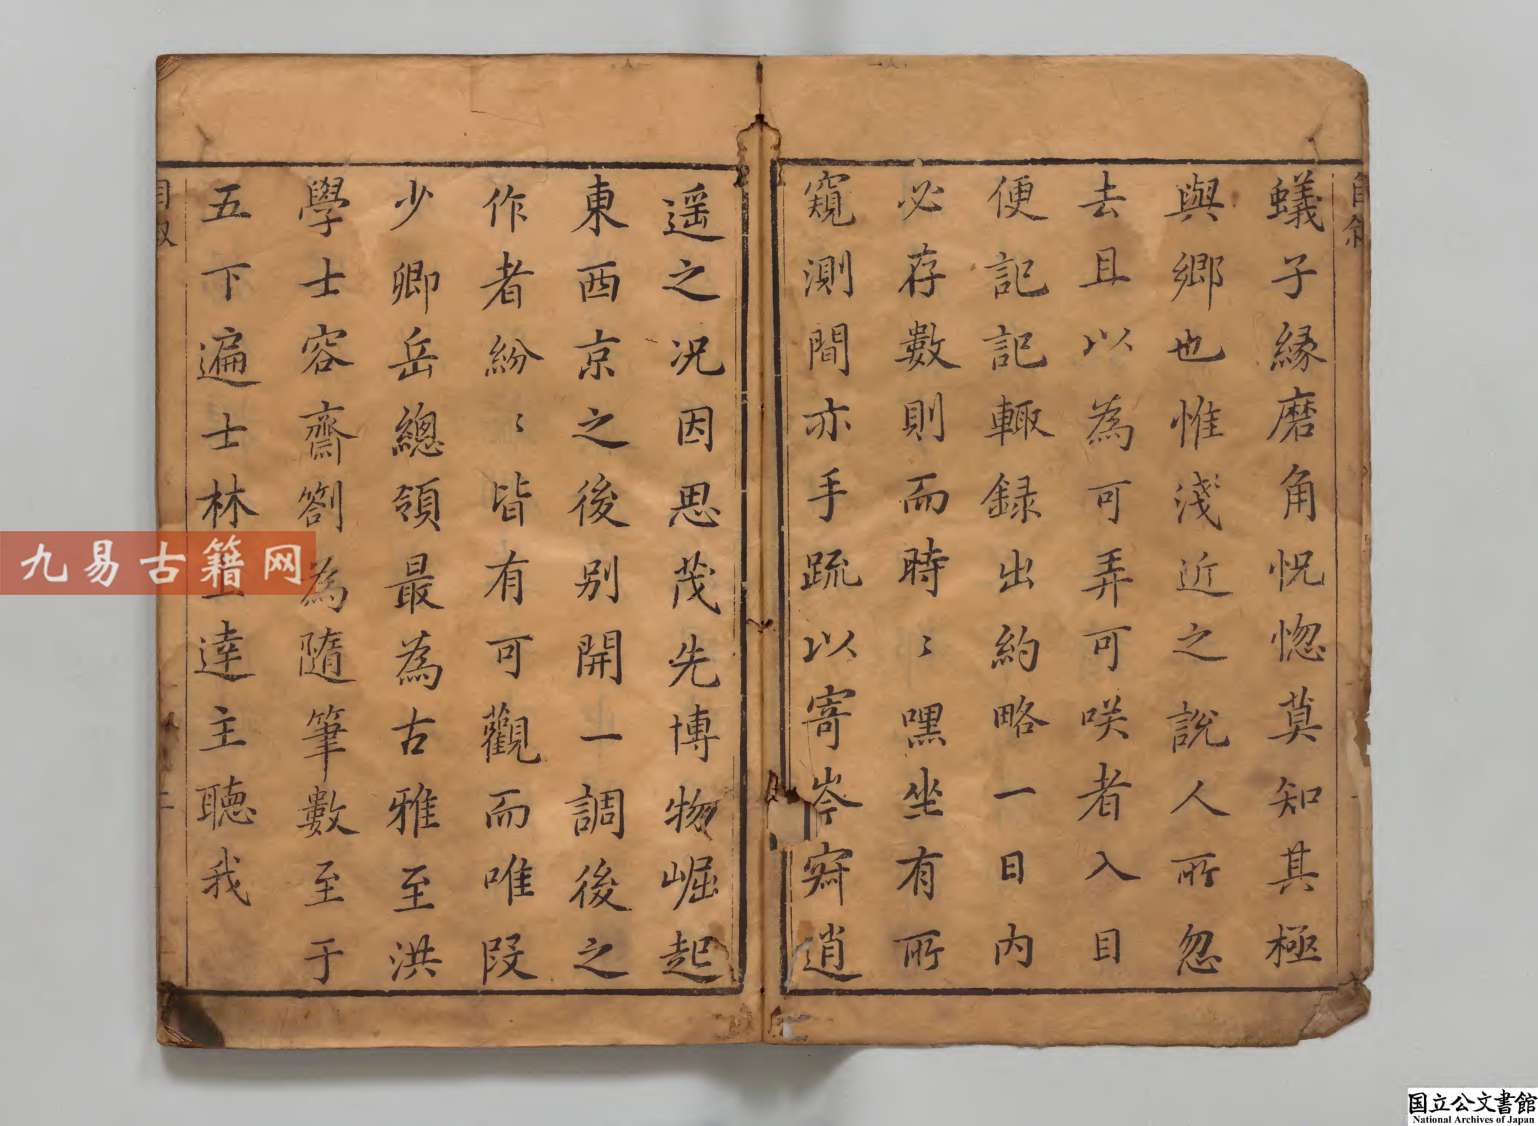 蟻子緣磨角怳惚莫知其極
與鄉也惟淺近之說人所忽
去且以為可弄可咲者入目
便記記輒録出約略一日內
必存數則而時〻嘿坐有所
窺測間亦手疏以寄岑齋逍
遥之况因思茂先博物崛起
東西京之後别開一調後之
作者紛〻皆有可觀而唯段
少卿岳總領最為古雅至洪
學士容齋劄為隨筆數至于
五下遍士林上達主聽我
自敘
九易古籍网
国立公文書館
National Archives of Japan